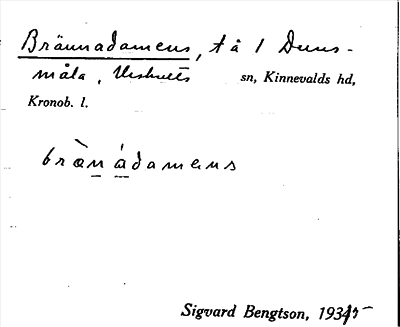 Brännadamens, tå 1 Duns-
måla, Urshults sn, Kinnevalds hd,
Kronob. l.
brὰn ádamens
Sigvard Bengtson, 193